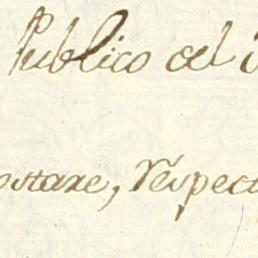 Publico del
ostare, respect